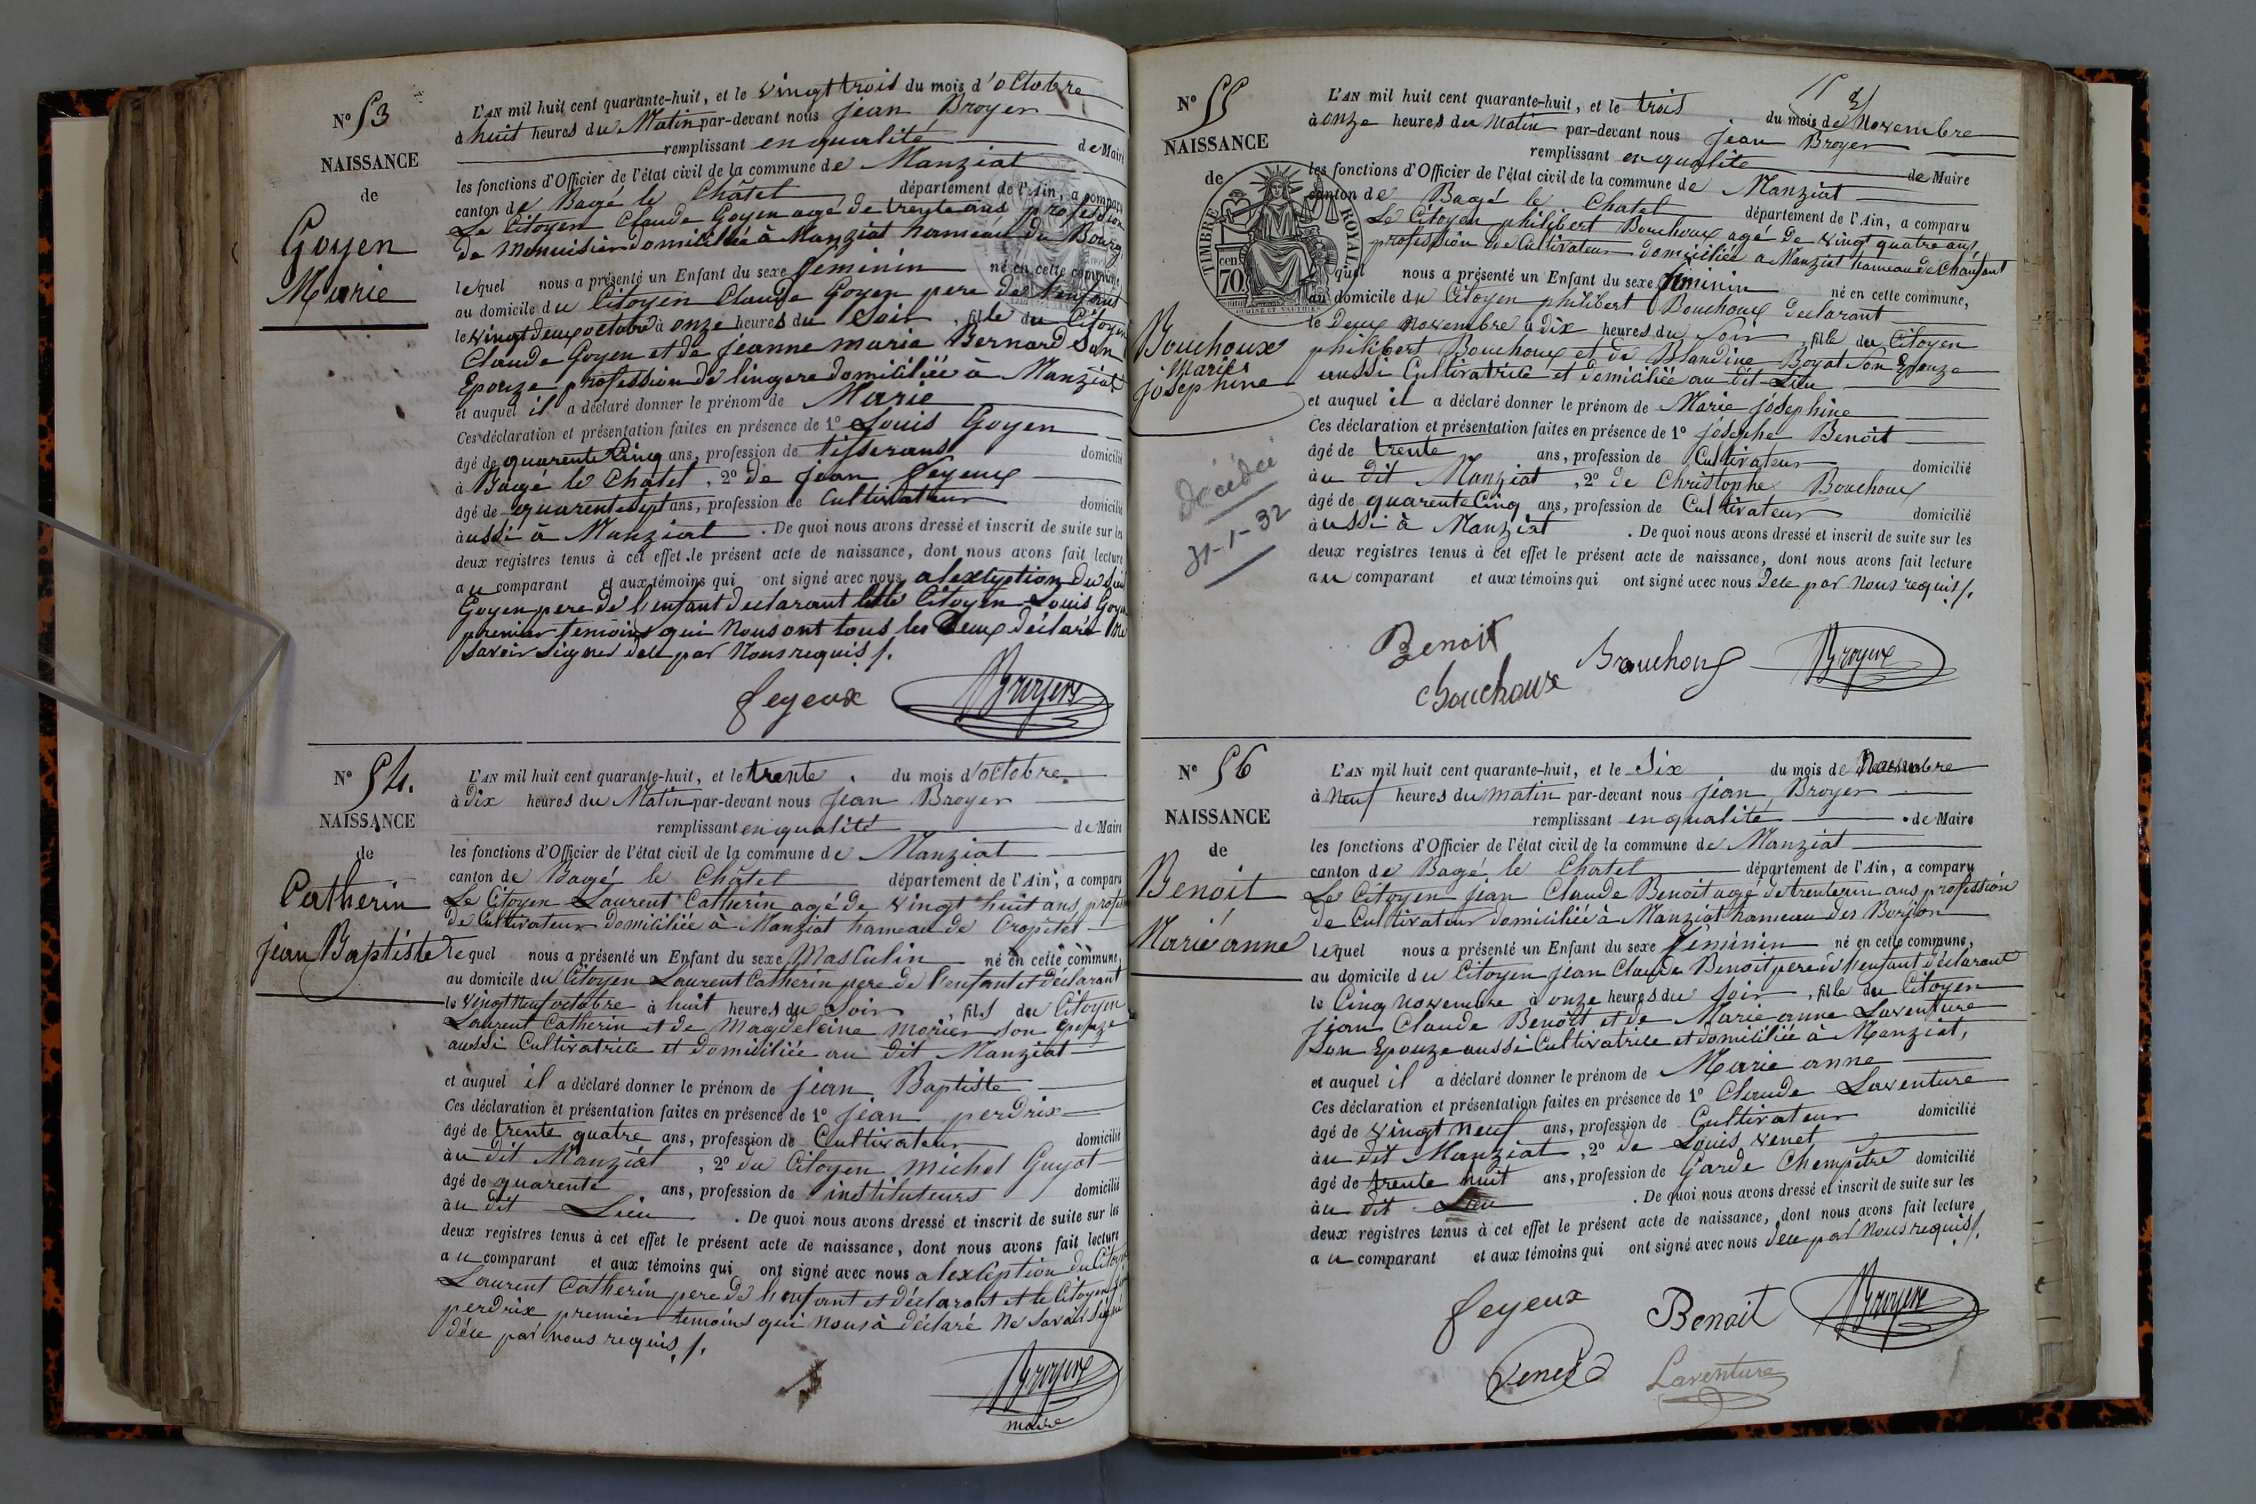 N° 53
NAISSANCE
de
Goyen
Marie
L'AN mil huit cent quarante-huit, et le vingt trois du mois d'octobre
à huit heures du Matin par-devant nous jean Broyer
remplissant en qualité de Maire
les fonctions d'Officier de l'état civil de la commune de Manziat
canton de Bagé le Châtel département de l'Ain, a comparu
Le Citoyen Claude Goyen agé de trente ans profession
de Menuisier domiciliée à Manziat hameau du Bourg
lequel nous a présenté un Enfant du sexe feminin né en cette commune
au domicile du Citoyen Claude Goyen pere de l'enfant
le vingt deux octobre à onze heures du Soir, fille du Citoyen
Claude Goyen et de jeanne marie Bernard Son
Epouze profession de lingere domiciliée à Manziat
et auquel il a déclaré donner le prénom de Marie
Ces déclaration et présentation faites en présence de 1° Louis Goyen
âgé de quarente Cinq ans, profession de tisserans domicilié
à Bagé le Châtel, 2° de jean feyeux
âgé de quarente sept ans, profession de Cultivateur domicilié
aussi à Manziat. De quoi nous avons dressé et inscrit de suite sur les
deux registres tenus à cet effet le présent acte de naissance, dont nous avons fait lecture
au comparant et aux témoins qui ont signé avec nous a lexception du
Goyen pere de l'enfant declarant et le Citoyen Louis Goyen
premier temoins qui Nous ont tous les Deux déclaré Ne
savoir signer dece par Nous requis ./.
feyeux Broyer
N° 54.
NAISSANCE
de
Catherin
jean Baptiste
L'AN mil huit cent quarante-huit, et le trente du mois d'octobre
à dix heures du Matin par-devant nous jean Broyer
remplissant en qualité de Maire
les fonctions d'Officier de l'état civil de la commune de Manziat
canton de Bagé le Châtel département de l'Ain, a comparu
Le Citoyen Laurent Catherin agé de vingt huit ans profession
de Cultivateur domiciliée à Manziat hameau de Cropetet
lequel nous a présenté un Enfant du sexe Masculin né en cette commune,
au domicile du Citoyen Laurent Catherin pere de l'enfant et déclarant
le vingt neuf octobre à huit heures du Soir, fils du Citoyen
Laurent Catherin et de Magdeleine Morier son Epouze
aussi Cultivatrice et domiciliée au dit Manziat
et auquel il a déclaré donner le prénom de jean Baptiste
Ces déclaration et présentation faites en présence de 1° jean perdrix
âgé de trente quatre ans, profession de Cultivateur domicilié
au dit Manziat, 2° du Citoyen michel Guyot
âgé de quarente ans, profession de instituteurs domicilié
au dit Lieu. De quoi nous avons dressé et inscrit de suite sur les
deux registres tenus à cet effet le présent acte de naissance, dont nous avons fait lecture
au comparant et aux témoins qui ont signé avec nous a lexception du Citoyen
Laurent Catherin pere de l'enfant et déclarant et le Citoyen
perdrix premier temoins qui nous à déclaré Ne savoir signé
déce par nous requis ./.
Broyer
maire
N° 55
NAISSANCE
de
TIMBRE ROYAL
70 cen
Bouchoux
Marie
josephine
Décédée
31-1-32
L'AN mil huit cent quarante-huit, et le trois du mois de Novembre
à onze heures du Matin par-devant nous jean Broyer
remplissant en qualité de Maire
les fonctions d'Officier de l'état civil de la commune de Manziat
canton de Bagé le Chatel département de l'Ain, a comparu
Le Citoyen philibert Bouchoux agé de vingt quatre ans
profession de Cultivateur domiciliée a Manziat hameau de Chanfant
lequel nous a présenté un Enfant du sexe feminin né en cette commune,
au domicile du Citoyen philibert Bouchoux declarant
le Deux Novembre à dix heures du Soir, fille du Citoyen
philibert Bouchoux et de Blandine Boyat Son Epouze
aussi Cultivatrice et domiciliée au dit Lieu
et auquel il a déclaré donner le prénom de Marie josephine
Ces déclaration et présentation faites en présence de 1° josephe Benoit
âgé de trente ans, profession de Cultivateur domicilié
au dit Manziat, 2° de Christophe Bouchoux
âgé de quarente Cinq ans, profession de Cultivateur domicilié
aussi à Manziat. De quoi nous avons dressé et inscrit de suite sur les
deux registres tenus à cet effet le présent acte de naissance, dont nous avons fait lecture
au comparant et aux témoins qui ont signé avec nous dece par Nous requis ./.
Benoit Bouchoux Broyer
Bouchoux
N° 56
NAISSANCE
de
Benoit
Marie anne
L'AN mil huit cent quarante-huit, et le Six du mois de Novembre
à Neuf heures du matin par-devant nous jean Broyer
remplissant en qualité de Maire
les fonctions d'Officier de l'état civil de la commune de Manziat
canton de Bagé le Chatel département de l'Ain, a comparu
Le Citoyen jean Claude Benoit agé de trente un ans profession
de Cultivateur domiciliée à Manziat hameau des Borjon
lequel nous a présenté un Enfant du sexe féminin né en cette commune,
au domicile du Citoyen jean Claude Benoit pere de l'enfant déclarant
le Cinq Novembre à onze heures du Soir, fille du Citoyen
jean Claude Benoit et de Marie anne Laventure
Son Epouze aussi Cultivatrice et domiciliée à Manziat,
et auquel il a déclaré donner le prénom de Marie anne
Ces déclaration et présentation faites en présence de 1° Claude Laventure
âgé de vingt neuf ans, profession de Cultivateur domicilié
au dit Manziat, 2° de Louis Venet
âgé de trente huit ans, profession de Garde Chempêtre domicilié
au dit Lieu. De quoi nous avons dressé et inscrit de suite sur les
deux registres tenus à cet effet le présent acte de naissance, dont nous avons fait lecture
au comparant et aux témoins qui ont signé avec nous dece par Nous requis ./.
feyeux Benoit Broyer
Venet Laventure